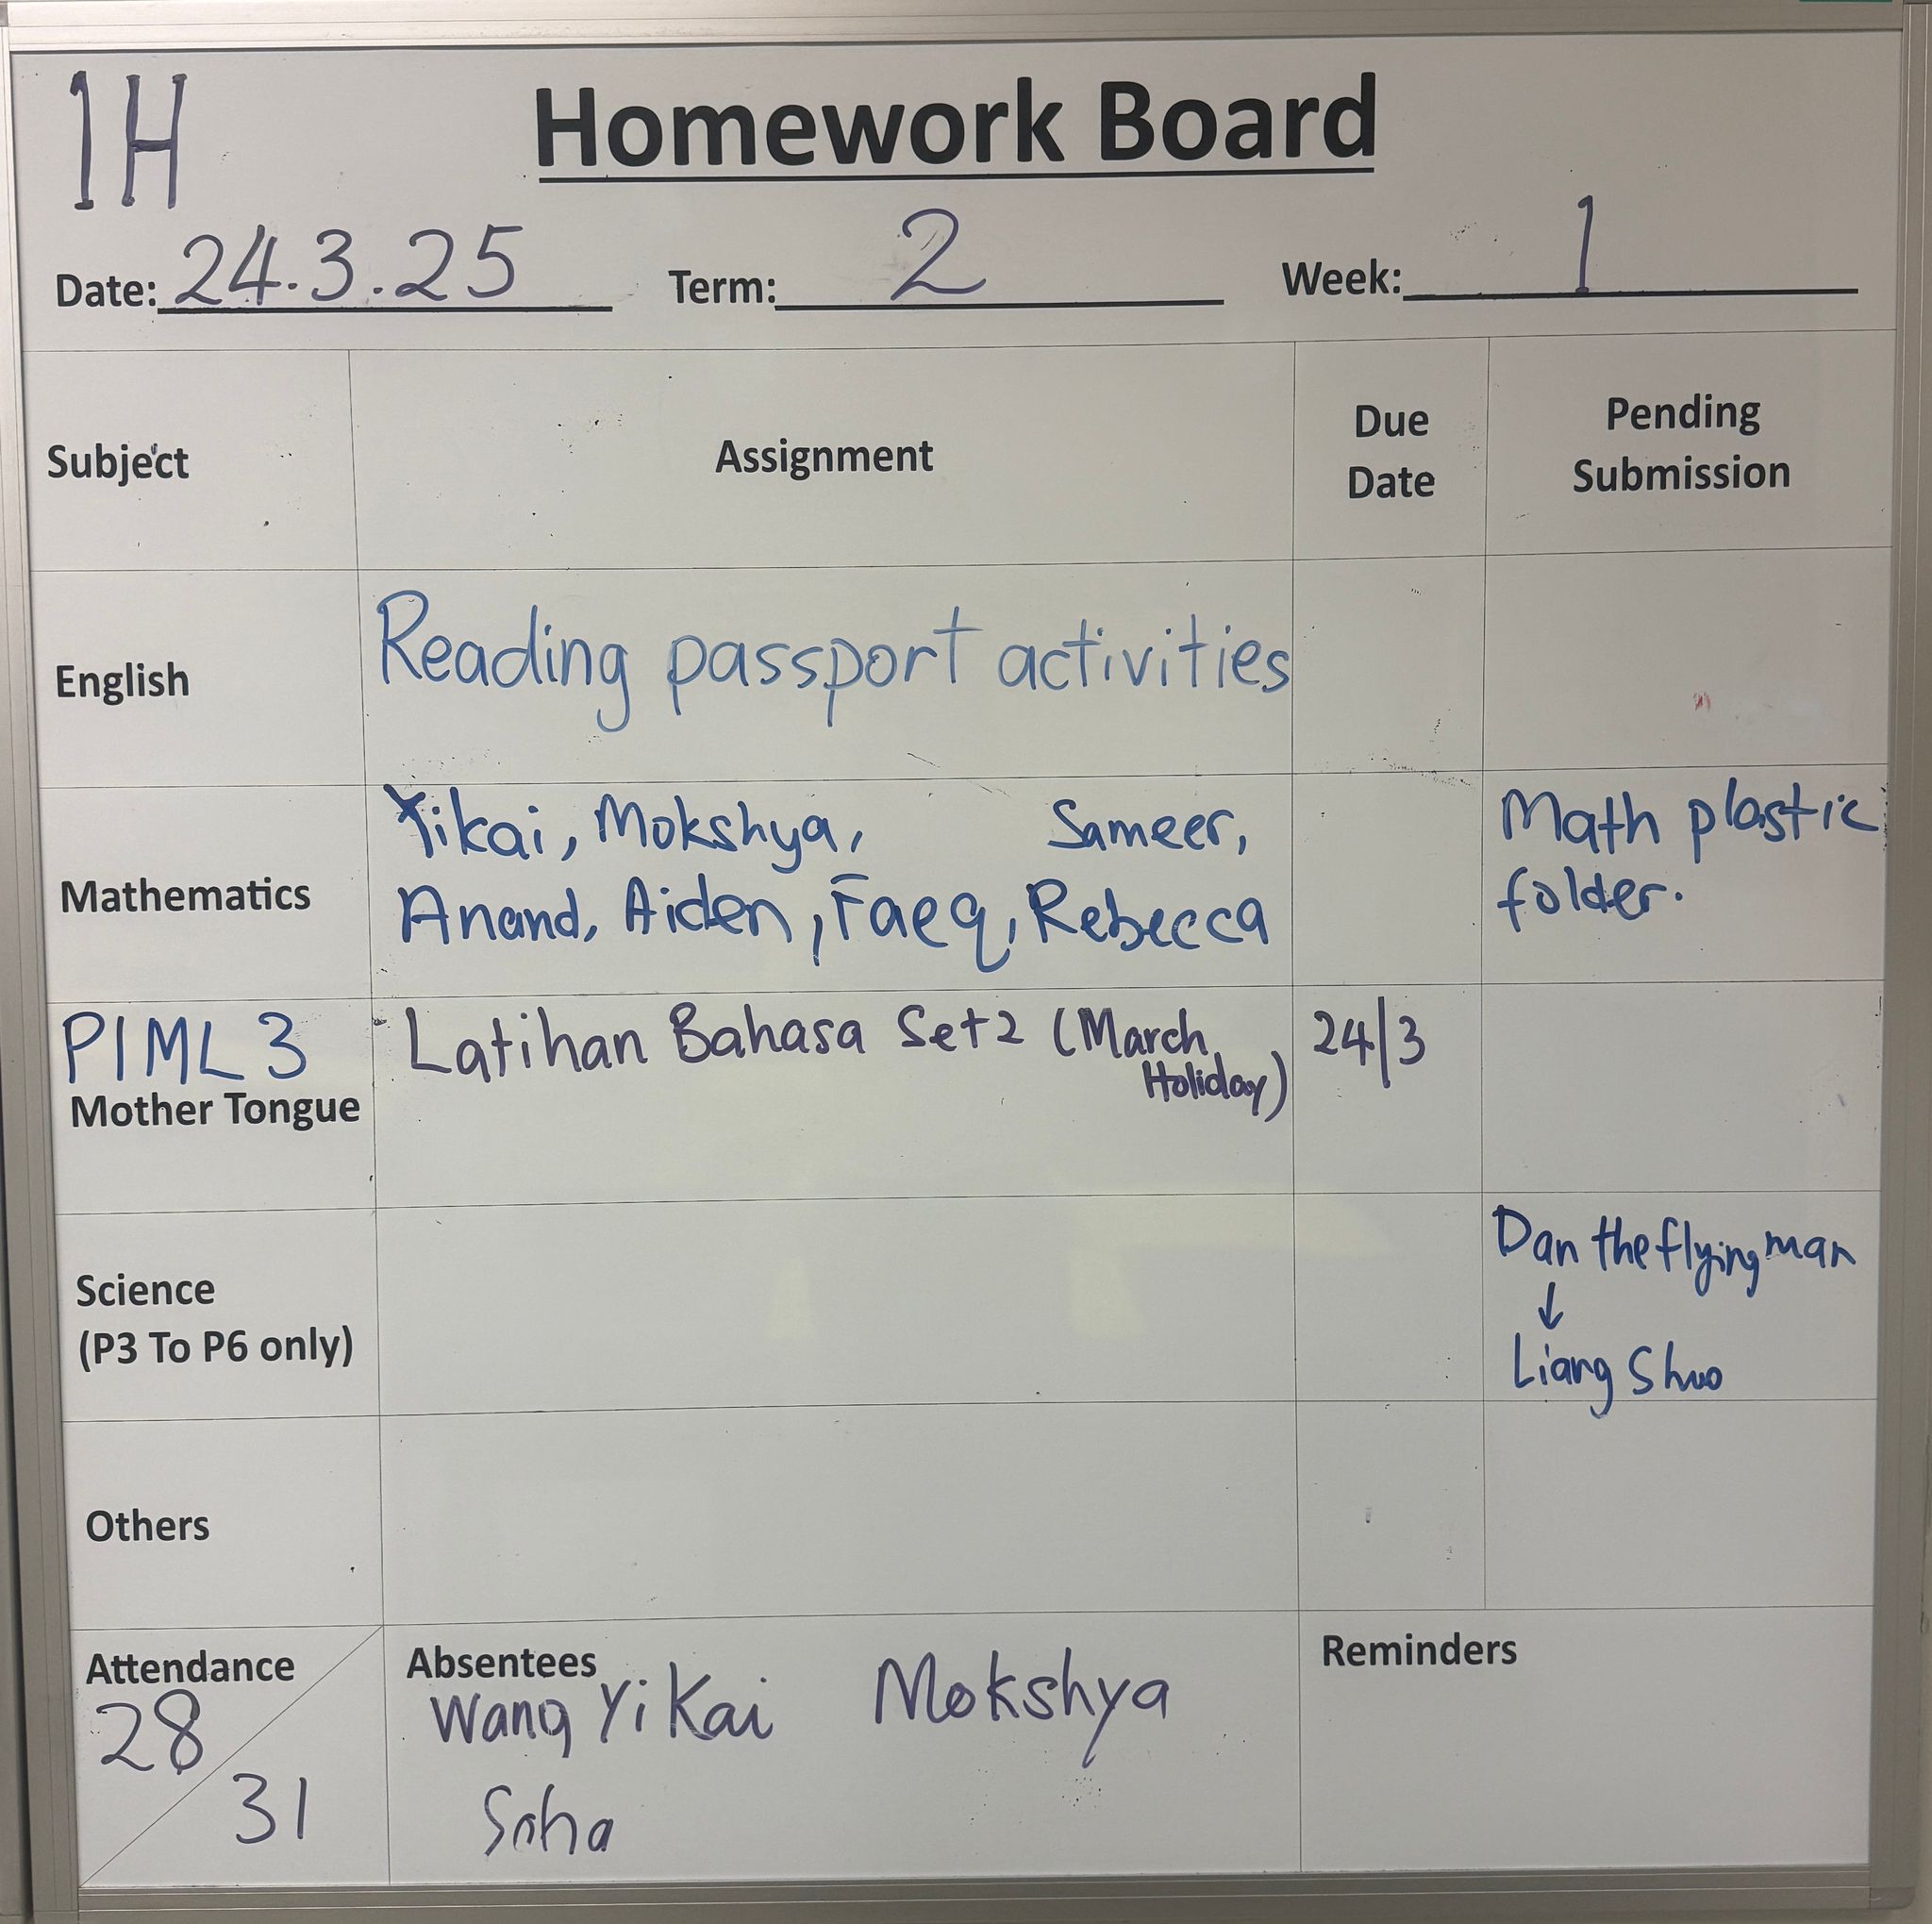 1H
Homework Board
Date: 24.3.25 Term: 2 Week: 1
Subject Assignment Due Date Pending Submission
English Reading passport activities
Mathematics
Yikai, Mokshya, Sameer,
Anand, Aiden, Faeq, Rebecca
Math plastic
folder.
PIML 3
Mother Tongue
Latihan Bahasa Set 2 (March
Holiday)
24/3
Science
(P3 To P6 only)
Dan the flying man
↓
Liang Shuo
Others
Attendance
28
31
Absentees
Wang Yi Kai Mokshya
Saha
Reminders